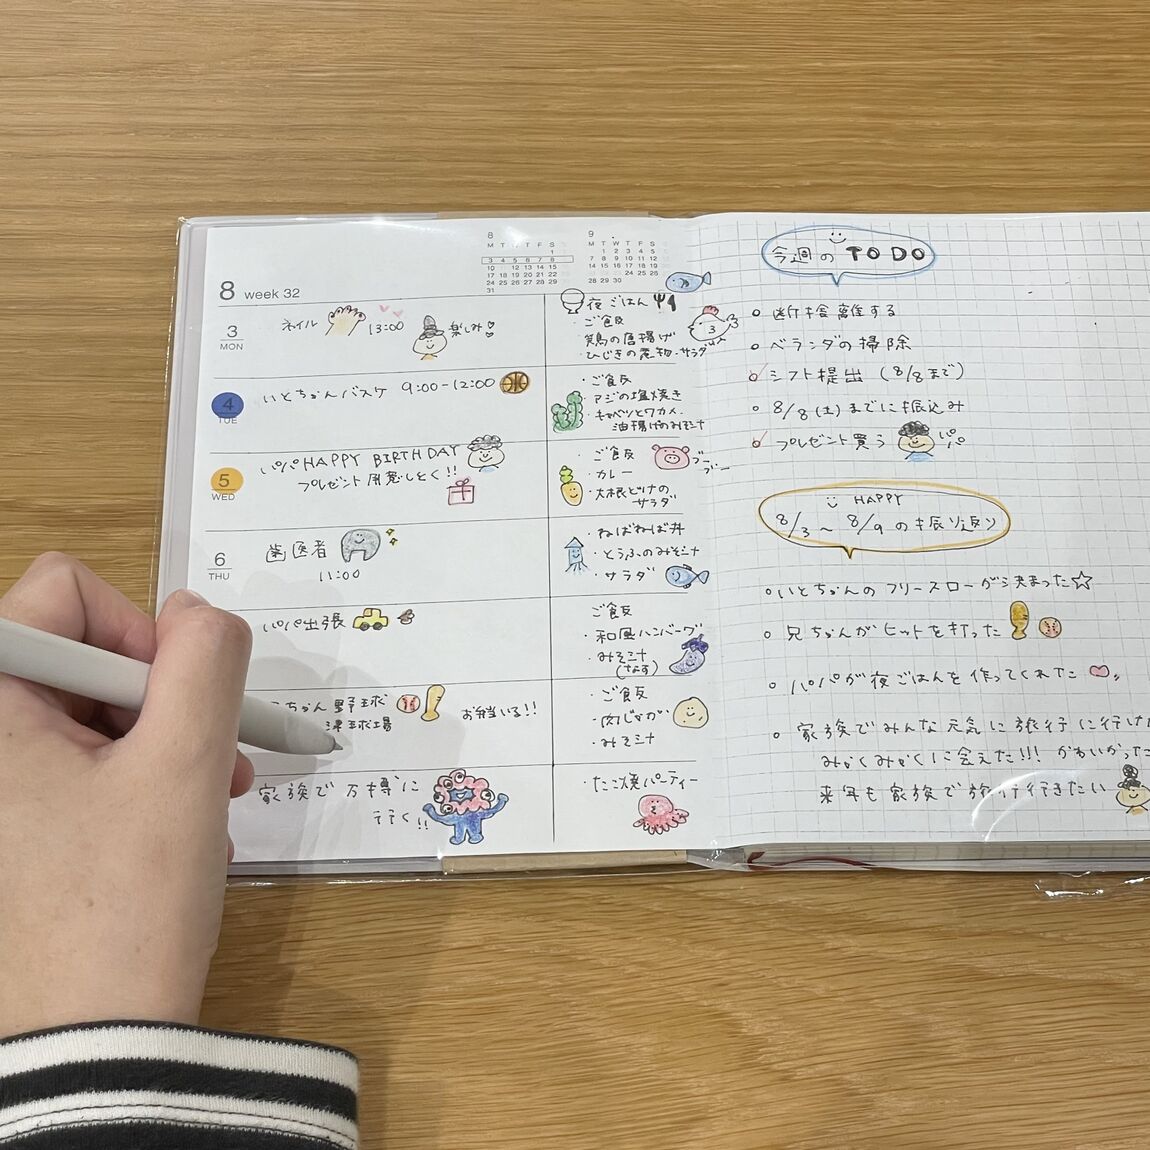 8 week 32
8
M T W T F S
1
3 4 5 6 7 8
10 12 13 14 15
17 18 19 20 21 22
24 25 26 27 28 29
31
9
M T W T F S
1 2 3 4 5
7 8 9 10 11 12
14 15 16 17 18 19
24 25 26
28 29 30
3
MON
ネイル 13:00 楽しみ
夜ごはん
・ご飯
・鶏の唐揚げ
・ひじきの煮物・サラダ
4
TUE
いとちゃんバスケ 9:00-12:00
・ご飯
・アジの塩焼き
・キャベツとワカメ、
油揚げのみそ汁
5
WED
パパHAPPY BIRTHDAY
プレゼント用意しとく!!
・ご飯
・カレー
・大根とツナの
サラダ
ブーブー
6
THU
歯医者
11:00
・ねばねば丼
・とうふのみそ汁
・サラダ
パパ出張
ご飯
・和風ハンバーグ
・みそ汁
(なす)
ちゃん野球
津球場
お弁当いる!!
・ご飯
・肉じゃが
・みそ汁
家族で万博に
行く!!
・たこ焼パーティー
今週のTO DO
○ 断捨離する
○ ベランダの掃除
○ シフト提出 (8/8まで)
○ 8/8(土)までに振込み
○ プレゼント買う パパ
HAPPY
8/3~8/9の振り返り
○いとちゃんのフリースローが決まった☆
○ 兄ちゃんがヒットを打った
○ パパが夜ごはんを作ってくれた
○ 家族でみんな元気に旅行に行けた
みゃくみゃくに会えた!!! かわいかった
来年も家族で旅行行きたい